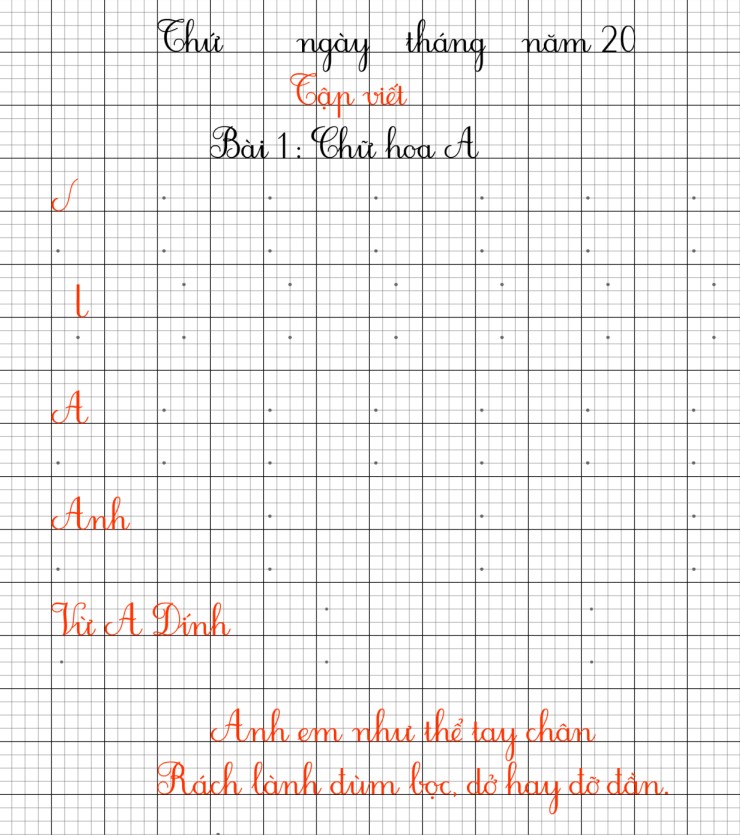 Thứ ngày tháng năm 20
Tập viết
Bài 1: Chữ hoa A
A
Anh
Vừ A Dính
Anh em như thể tay chân
Rách lành đùm bọc, dở hay đỡ đần.